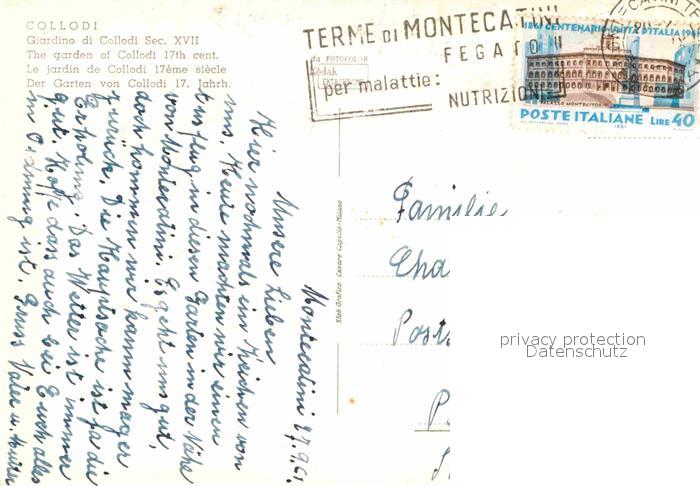 COLLODI
Giardino di Collodi Sec. XVII
The garden of Collodi 17th cent.
Le jardin de Collodi 17ème siècle
Der Garten von Collodi 17. Jahrh.
da FOTOCOLOR
Kodak
EKTACHROME
TERME DI MONTECATINI
FEGATO
per malattie:
NUTRIZIONE
1861 CENTENARIO UNITÀ D'ITALIA 1961
PALAZZO MONTECITORIO
POSTE ITALIANE LIRE 40
1961
Montecatini 27.9.61.
Unsere Lieben
Hier nochmals ein Zeichen von
uns. Heute machten wir einen
Ausflug in diesen Garten in der Nähe
von Montecatini. Es geht uns gut,
doch kommen wir kaum mager
zurück. Die Hauptsache ist ja die
Erholung. Das Wetter ist immer
gut. Hoffe dass auch bei Euch alles
in Ordnung ist. Gruss Vater u. Mutter
Stab. Grafico Cesare Capello - Milano
Familie
Cha
Post
P
privacy protection
Datenschutz